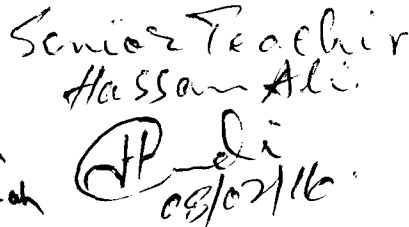 Senior Teachir
Hassan Ali.
08/02/16.